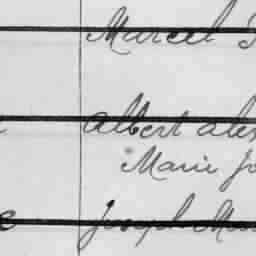 Marcel
Albert alex
Marie Jo
Joseph